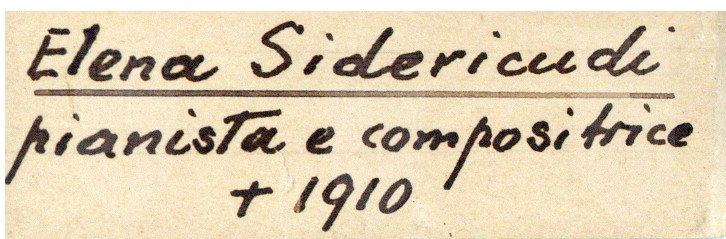 Elena Sidericudi
pianista e compositrice
+ 1910